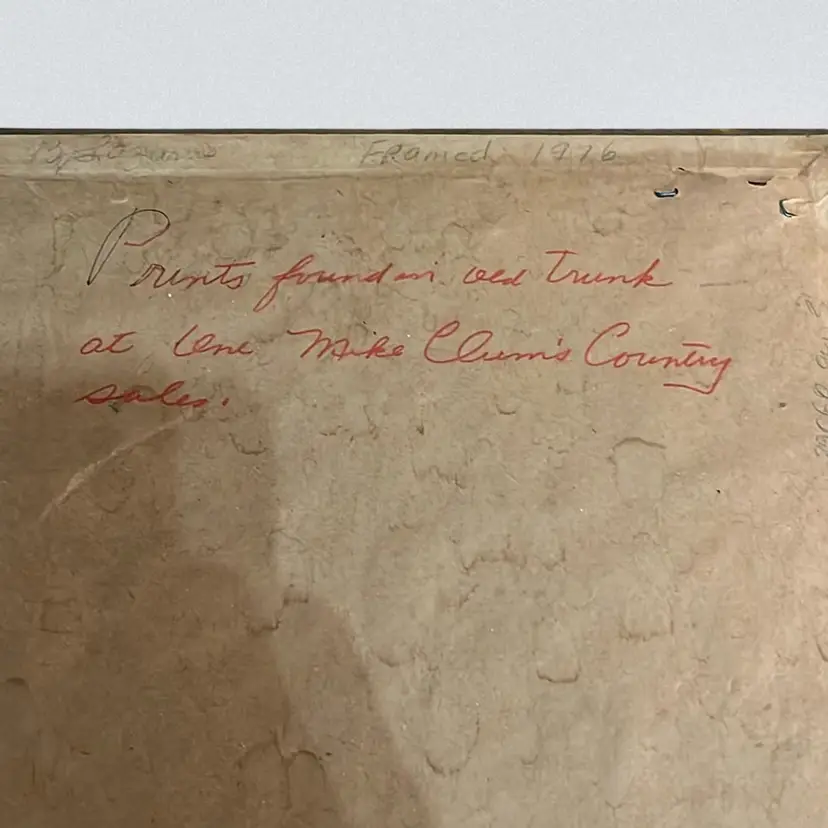 Framed 1976
Prints found in old Trunk
at One Mike Clum's Country
sales.